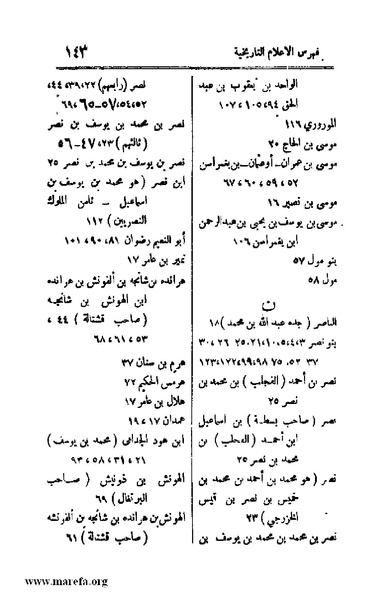 فهرس الاعلام التاريخية
١٤٣
الواحد بن يعقوب بن عبد
الحق ٩٤، ١٠٥، ١٠٧
الموروري ١١٦
موسى بن الحاج ٢٠
موسى بن عمران - أوعمان - بن يغمراسن
٥٢، ٥٩، ٦٠، ٦٧
موسى بن نصير ١٦
موسى بن يوسف بن يحيى بن عبد الرحمن
ابن يغمراسن ١٠٦
بنو مول ٥٧
مول ٥٨
ن
الناصر (جده عبد الله بن محمد) ١٨
بنو نصر ٣،
٣٧
نصر بن أحمد بن محمد بن
نصر ٢٥
نصر (صاحب بسطة) بن اسماعيل
ابن أحمد بن
محمد بن نصر ٢٥
نصر (هو محمد بن أحمد بن محمد بن
خميس بن نصر بن قيس
الخزرجي) ٢٣
نصر بن محمد بن محمد بن يوسف بن
نصر (رابعهم) ٢٢، ٣٩، ٤٤،
٥٢، ٥٤، ٥٧-٦٥، ٦٩
نصر بن محمد بن يوسف بن نصر
(ثالثهم) ٢٣، ٤٧-٥٦
نصر بن يوسف بن محمد بن نصر ٢٥
ابن نصر (هو محمد بن يوسف بن
اسماعيل - ثامن الملوك
النصريين) ١١٢
أبو النعيم رضوان ٨١، ٩٠، ١٠١
نمير بن عامر ١٧
هرانده بن شانجه بن ألفونش بن هرانده
ابن الهونش بن شانجه
(صاحب قشتالة) ٤٤،
٥٣، ٦١، ٦٨
هرم بن سنان ٣٧
هرمس الحكيم ٧٢
هلال بن عامر ١٧
همدان ١٧، ١٩
ابن هود الجذامي (محمد بن يوسف)
٢١، ٣١، ٥٨، ٩٣
الهونش بن ذونيش (صاحب
البرتغال) ٦٩
الهونش بن هرانده بن شانجه بن الفونشه
(صاحب قشتالة) ٦١
www.marefa.org